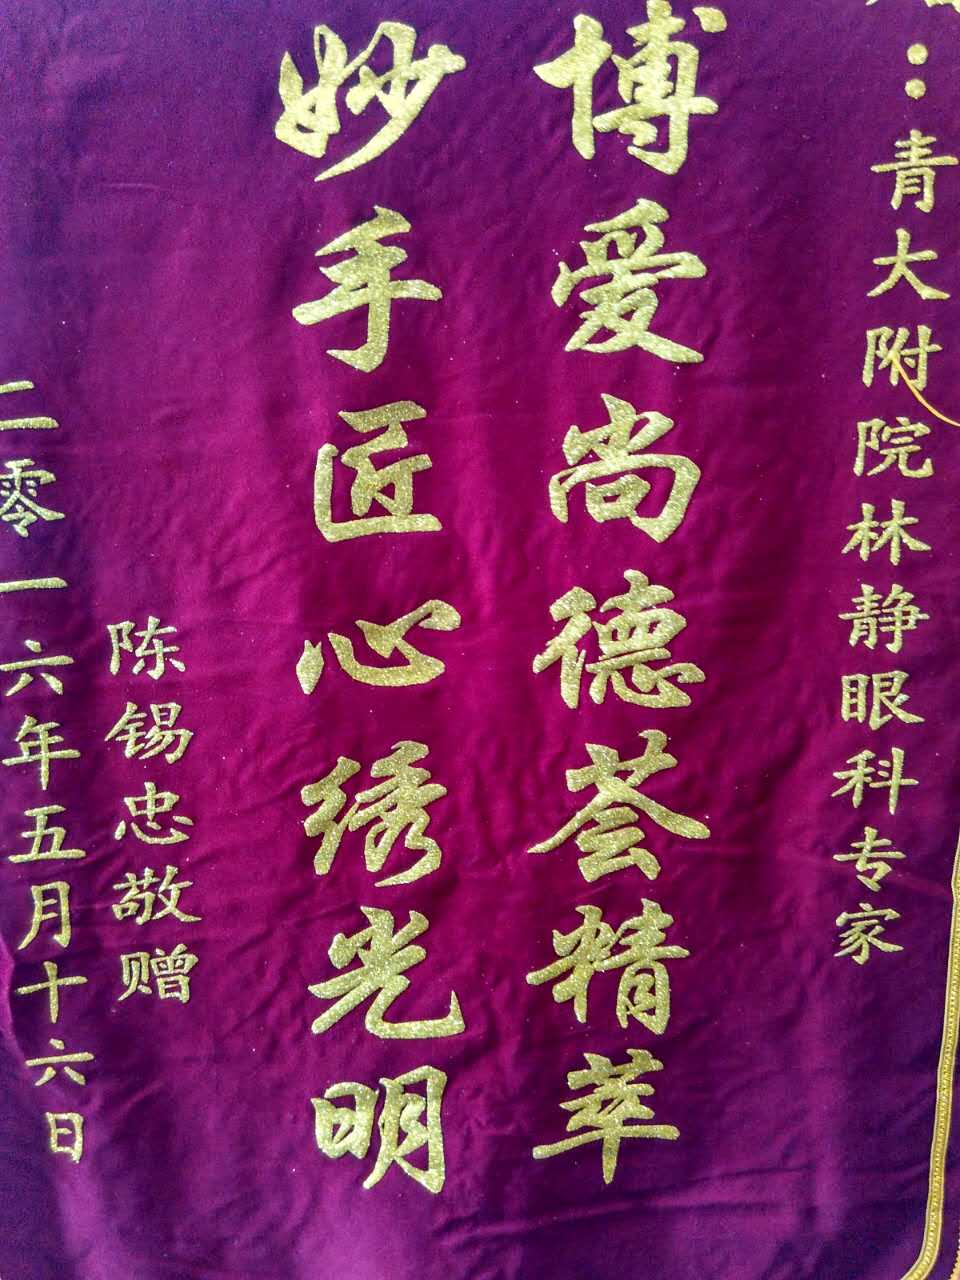 ：青大附院林静眼科专家
博爱尚德荟精萃
妙手匠心绣光明
陈锡忠敬赠
二零一六年五月十六日